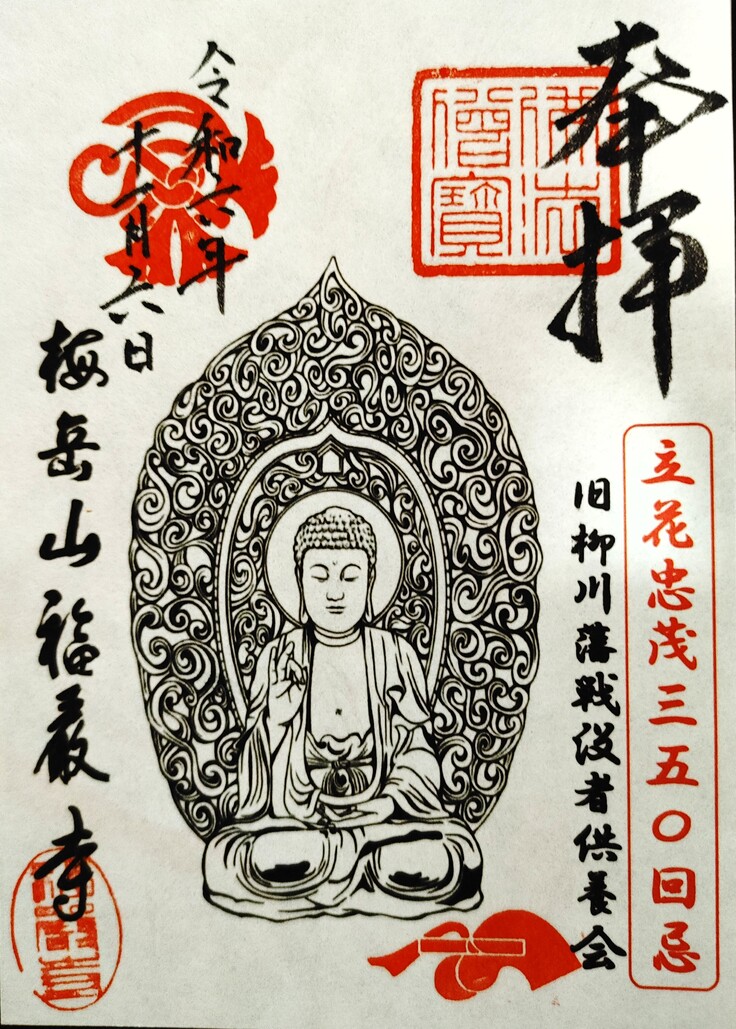 奉拝
佛法
僧寶
立花忠茂三五〇回忌
旧柳川藩戦没者供養会
令和六年
十一月六日
梅岳山福厳寺